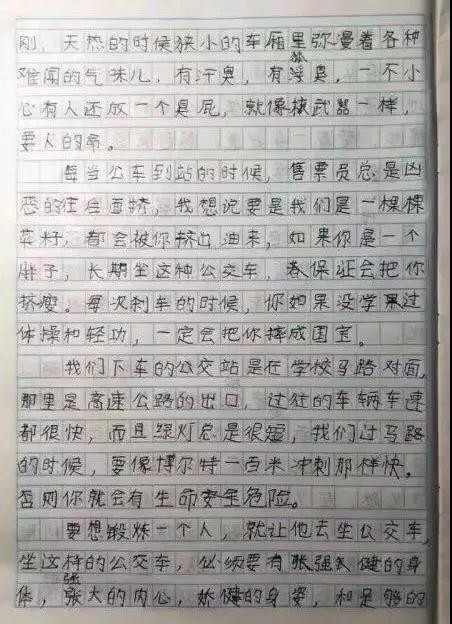 刚，天热的时候狭小的车厢里弥漫着各种
难闻的气味儿，有汗臭，有狐臭，一不小
心有人还放一个臭屁，就像核武器一样，
要人的命。
每当公车到站的时候，售票员总是凶
恶的往后面挤，我想说要是我们是一棵棵
菜籽，都会被你挤出油来，如果你是一个
胖子，长期坐这种公交车，卷保证会把你
挤瘦。每次刹车的时候，你如果没学果过
体操和轻功，一定会把你摔成国宝。
我们下车的公交站是在学校马路对面，
那里是高速公路的出口，过往的车辆车速
都很快，而且绿灯总是很短，我们过马路
的时候，要像博尔特一百米冲刺那样快。
否则你就会有生命安全危险。
要想锻炼一个人，就让他去坐公交车，
坐这样的公交车，必须要有强健的身
体，强大的内心，娇健的身姿，和足够的